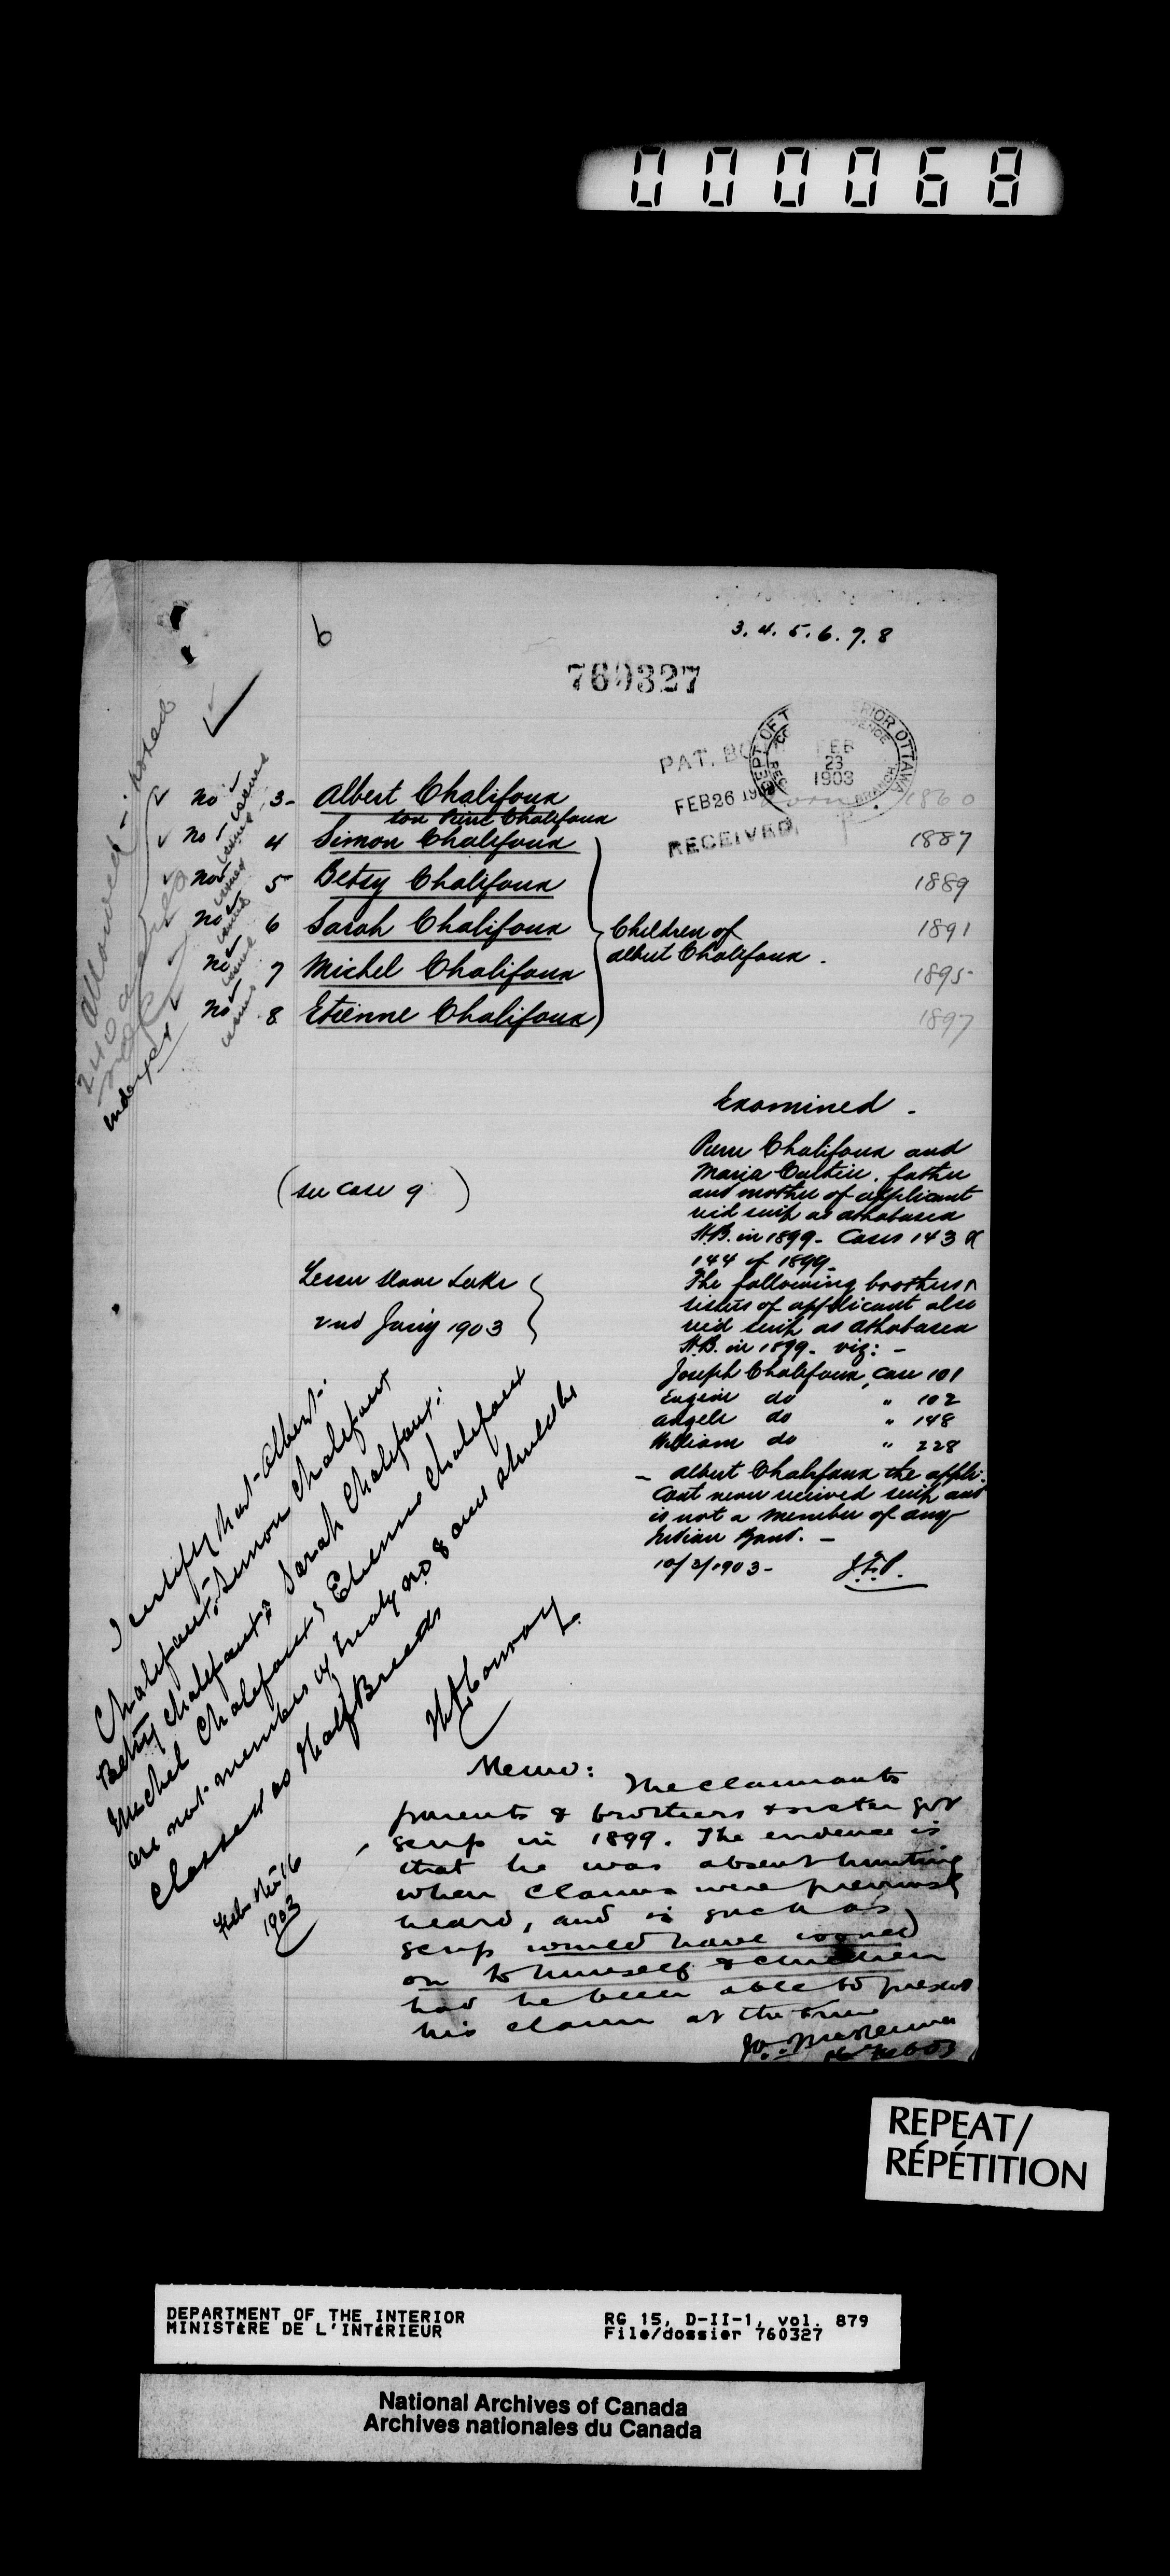 000068
6
3. 4. 5. 6. 7. 8
760327
DEPT OF THE INTERIOR OTTAWA
FEB
23
1903
PAT. B
FEB 26 19
RECEIVED
allowed - noted
240 acres
indexed
No issued 3- Albert Chalifoux 1860
son Pierre Chalifoux
No issued 4 Simon Chalifoux 1887
No issued 5 Betsy Chalifoux 1889
No issued 6 Sarah Chalifoux 1891
No issued 7 Michel Chalifoux 1895
No issued 8 Etienne Chalifoux 1897
Children of
Albert Chalifoux.
Examined -
Pierre Chalifoux and
Maria father
and mother of applicant
recd scrip as Athabasca
H.B. in 1899 - Cases 143 &
144 of 1899
The following brothers &
sisters of applicant also
recd scrip as Athabasca
H.B. in 1899 - viz: -
Joseph Chalifoux, case 101
Eugene do " 102
Angele do " 148
William do " 228
- Albert Chalifoux the appli-
cant never received scrip and
is not a member of any
Indian Band. -
10/3/1903 - J.F.P.
(see case 9)
Lesser Slave Lake
2nd Jany 1903
I certify that Albert
Chalifoux, Simon Chalifoux
Betsy Chalifoux, Sarah Chalifoux
Michel Chalifoux, Etienne Chalifoux
are not members of Treaty No 8 and should be
classed as Half Breeds
H A Conroy
Feb 16
1903
Memo: The claimants
parents & brothers & sister got
scrip in 1899. The evidence is
that he was absent hunting
when claims were previously
heard, and is such as
scrip would have issued
on to himself & children
had he been able to present
his claim at the time
REPEAT/
RÉPÉTITION
DEPARTMENT OF THE INTERIOR
MINISTÈRE DE L'INTÉRIEUR
RG 15, D-II-1, vol. 879
File/dossier 760327
National Archives of Canada
Archives nationales du Canada